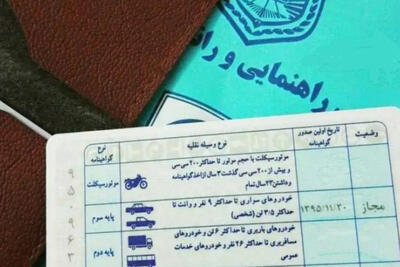 راهنمایی و را
وضعیت
تاریخ اولین صدور گواهینامه
نوع وسیله نقلیه
نوع گواهینامه
موتورسیکلت با حجم موتور تا حداکثر ۲۰۰ سی سی
و بیش از ۲۰۰ سی سی گذشت ۳ سال از اخذ گواهینامه
و داشتن ۲۳ سال تمام
موتورسیکلت
مجاز
۱۳۹۵/۱۱/۳۰
خودروهای سواری تا حداکثر ۹ نفر و وانت تا
حداکثر ۳/۵ تن (شخصی)
پایه سوم
خودروهای باربری تا حداکثر ۶ تن و خودروهای
مسافربری تا حداکثر ۲۶ نفر و خودروهای خدمات
عمومی
پایه دوم